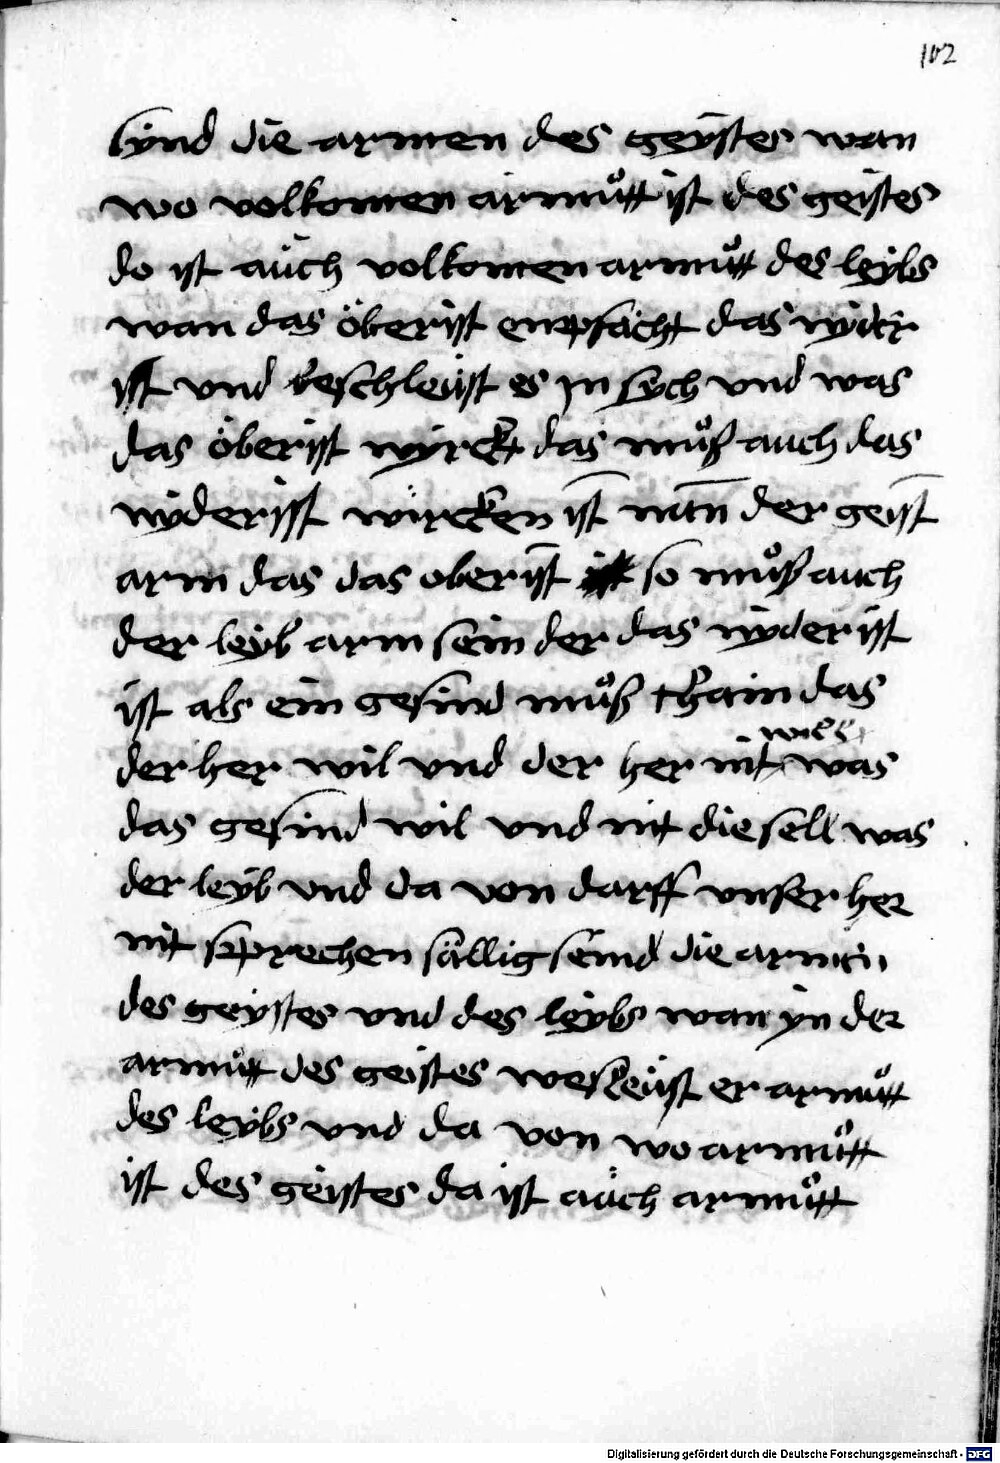 102
synd die armen des geystes wan
wo volkomen armůtt ist des geistes
do ist aůch volkomen armůtt des leybs
wan das öberist enpfächt das nyder
isst vnd beschleüst es jn sych vnd was
das öberist wyrckt das můß auch das
nyderisst würcken ist wan der geist
arm das das oberist so můß auch
der leyb arm sein der das nyderist
ist als ein gesind můß thain das
der her wil vnd der her nit wes was
das gesind wil vnd nit die sell was
der leyb vnd da von darff vnser her
nit sprechen sällig seind die armen
des geystes vnd des leybs wan yn der
armůtt des geistes besleüst er armůtt
des leybs vnd da von wo armůtt
ist des geistes da ist aůch armůtt
Digitalisierung gefördert durch die Deutsche Forschungsgemeinschaft - DFG